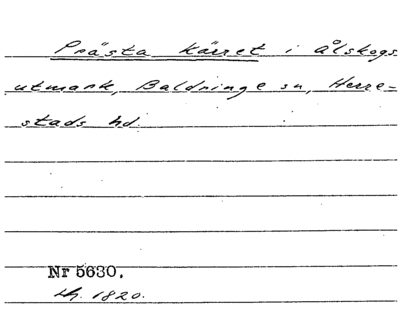 Prästa kärret i Ålskogs
utmark, Baldringe sn, Herre-
stads hd.
Nr 5630.
1820.